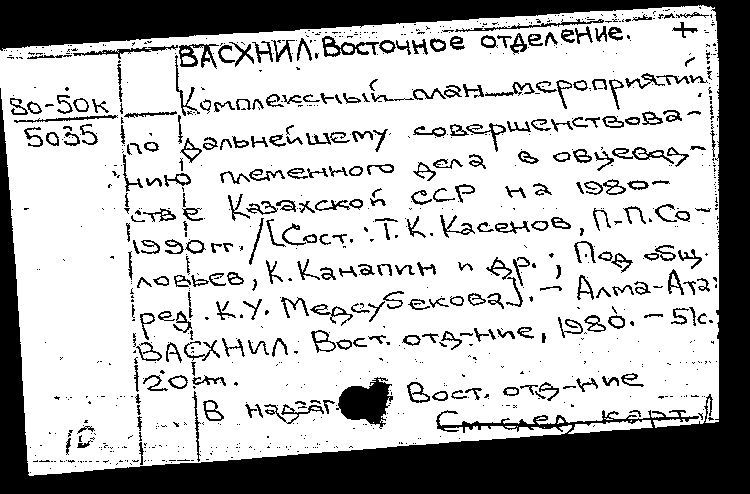 ВАСХНИЛ. Восточное отделение. +
80-50к
5035
Комплексный план мероприятий
по дальнейшему совершенствова-
нию племенного дела в овцевод-
стве Казахской ССР на 1980-
1990гг. / [Сост.: Т.К. Касенов, П.П. Со-
ловьев, К. Канапин и др.; Под общ.
ред. К.У. Медеубекова]. - Алма-Ата:
ВАСХНИЛ. Вост. отд-ние, 1980. - 51с.;
20см.
В надзаг. Вост. отд-ние
См. след. карт.
10